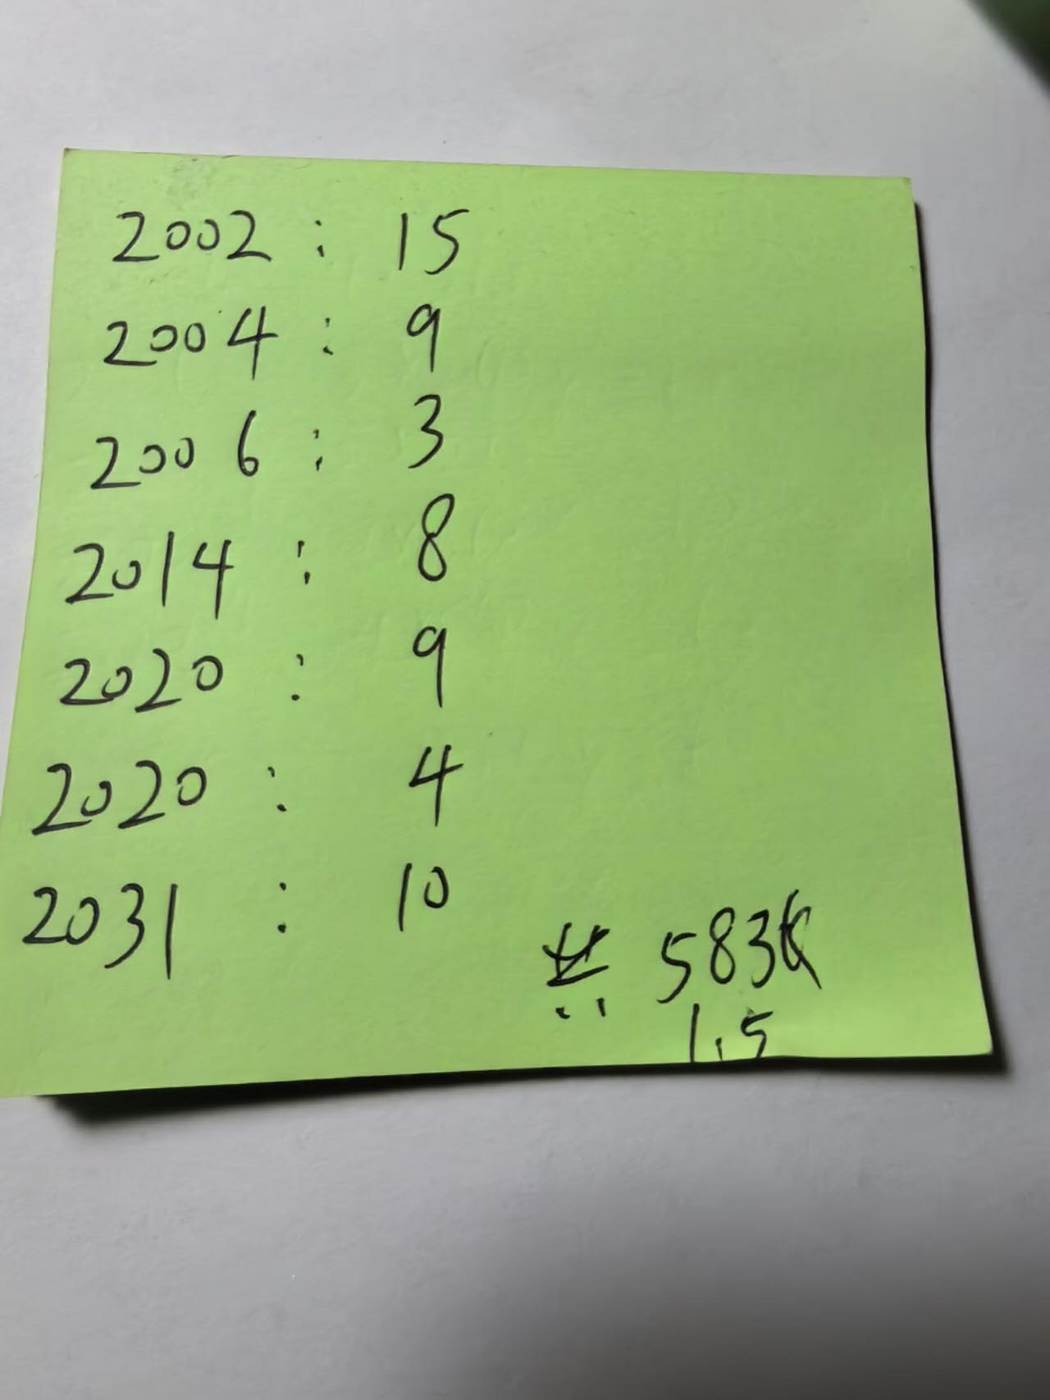 2002 : 15
2004 : 9
2006 : 3
2014 : 8
2020 : 9
2020 : 4
2031 : 10
共 583
1.5